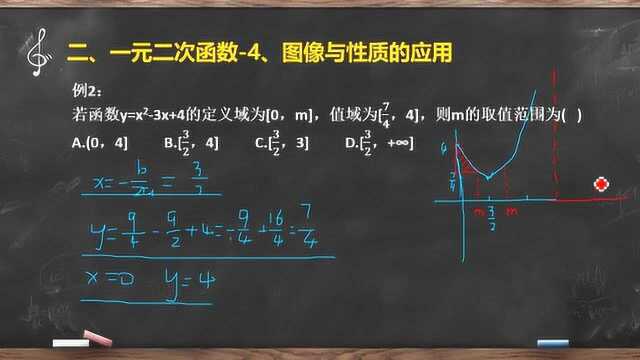 二、一元二次函数-4、图像与性质的应用
例2：
若函数y=x²-3x+4的定义域为[0，m]，值域为[7/4，4]，则m的取值范围为( )
A.(0，4] B.[3/2，4] C.[3/2，3] D.[3/2，+∞]
x=-b/2a=3/2
y=9/4-9/2+4=-9/4+16/4=7/4
x=0 y=4
4
7/4
m 3/2 m